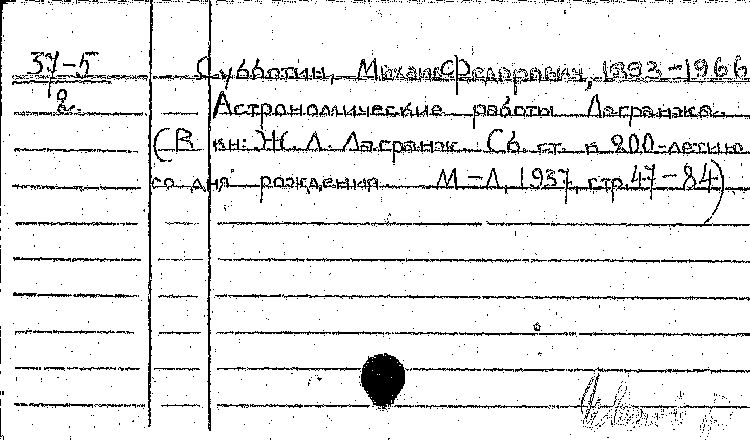 37-5
12
Субботин, Михаил Федорович, 1893-1966
Астрономические работы Лагранжа.
(В кн: Ж. Л. Лагранж. Сб. ст. к 200-летию
со дня рождения. М-Л, 1937, стр. 47-84)